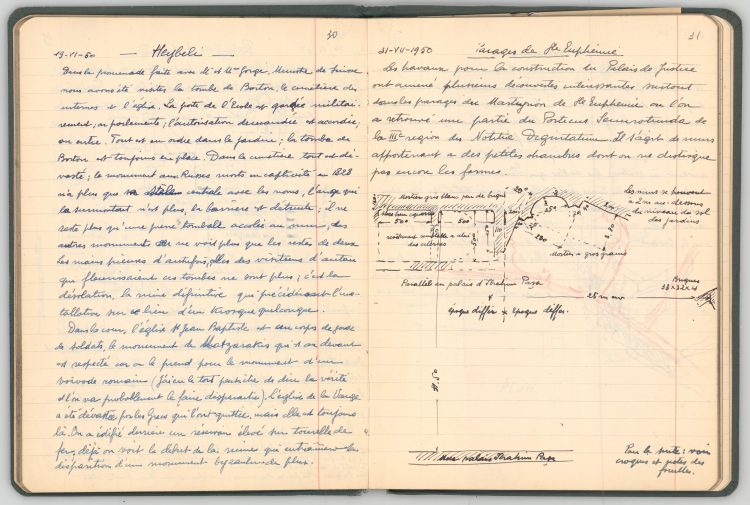 30
19-VI-50 — Heybeli —
Dans la promenade faite avec Mr et Mme Gorge, Ministre de Suisse
nous avons été visiter la tombe de Barton, le cimetière des
internés et l'église. La porte de l'Ecole est gardée militai-
rement; on parlemente; l'autorisation demandée et accordée,
on entre. Tout est en ordre dans le jardin; la tombe de
Barton est toujours en place. Dans le cimetière tout est dé-
vasté; le monument aux Russes morts en captivité en 1828
n'a plus que sa centrale avec les noms, l'ange qui
la surmontait n'est plus, la barrière est détruite; il ne
reste plus qu'une pierre tombale accolée au mur, des
autres monuments ne vois plus que les restes de deux
Les mains pieuses d'autrefois, des visiteurs d'antan
qui fleurissaient ces tombes ne sont plus; c'est la
désolation, la ruine définitive qui précède l'ins-
tallation sur ce lieu d'un Kiosque quelconque.
Dans la cour, l'église St Jean Baptiste et au corps de garde
de soldats, le monument de Matzarakis qui est au devant
est respecté car on le prend pour le monument d'un
voivode romain (j'ai eu le tort peut-être de dire la vérité
et l'on va probablement le faire disparaître). L'église de la Vierge
a été dévastée par les Grecs qui l'ont quittée, mais elle est toujours
là. On a édifié derrière un réservoir élevé sur tourelle de
fer, déjà on voit le début de la ruine qui entraînera la
disparition d'un monument byzantin de plus.
31
31-VII-1950 Parages de Ste Euphémie
Les travaux pour la construction du Palais de Justice
ont amené plusieurs découvertes intéressantes surtout
dans les parages du Martyrion de Ste Euphémie où l'on
a retrouvé une partie du Porticus Semirotunda de
la IIIe region des Notitia Dignitatum. Il s'agit de murs
appartenant à des petites chambres dont on ne distingue
pas encore les formes.
Mortier gros blanc peu de briques
500
500
revêtement
des citernes
Mortier à gros grains
les murs se trouvent
à 2 m au-dessous
du niveau du sol
des jardins
Briques
33 x 32 x 4
Parallèle au palais d'Ibrahim Paşa
25 m env
époque différ. x époque différ.
Mur Palais Ibrahim Paşa
Pour la suite: voir
croquis et notes des
fouilles.